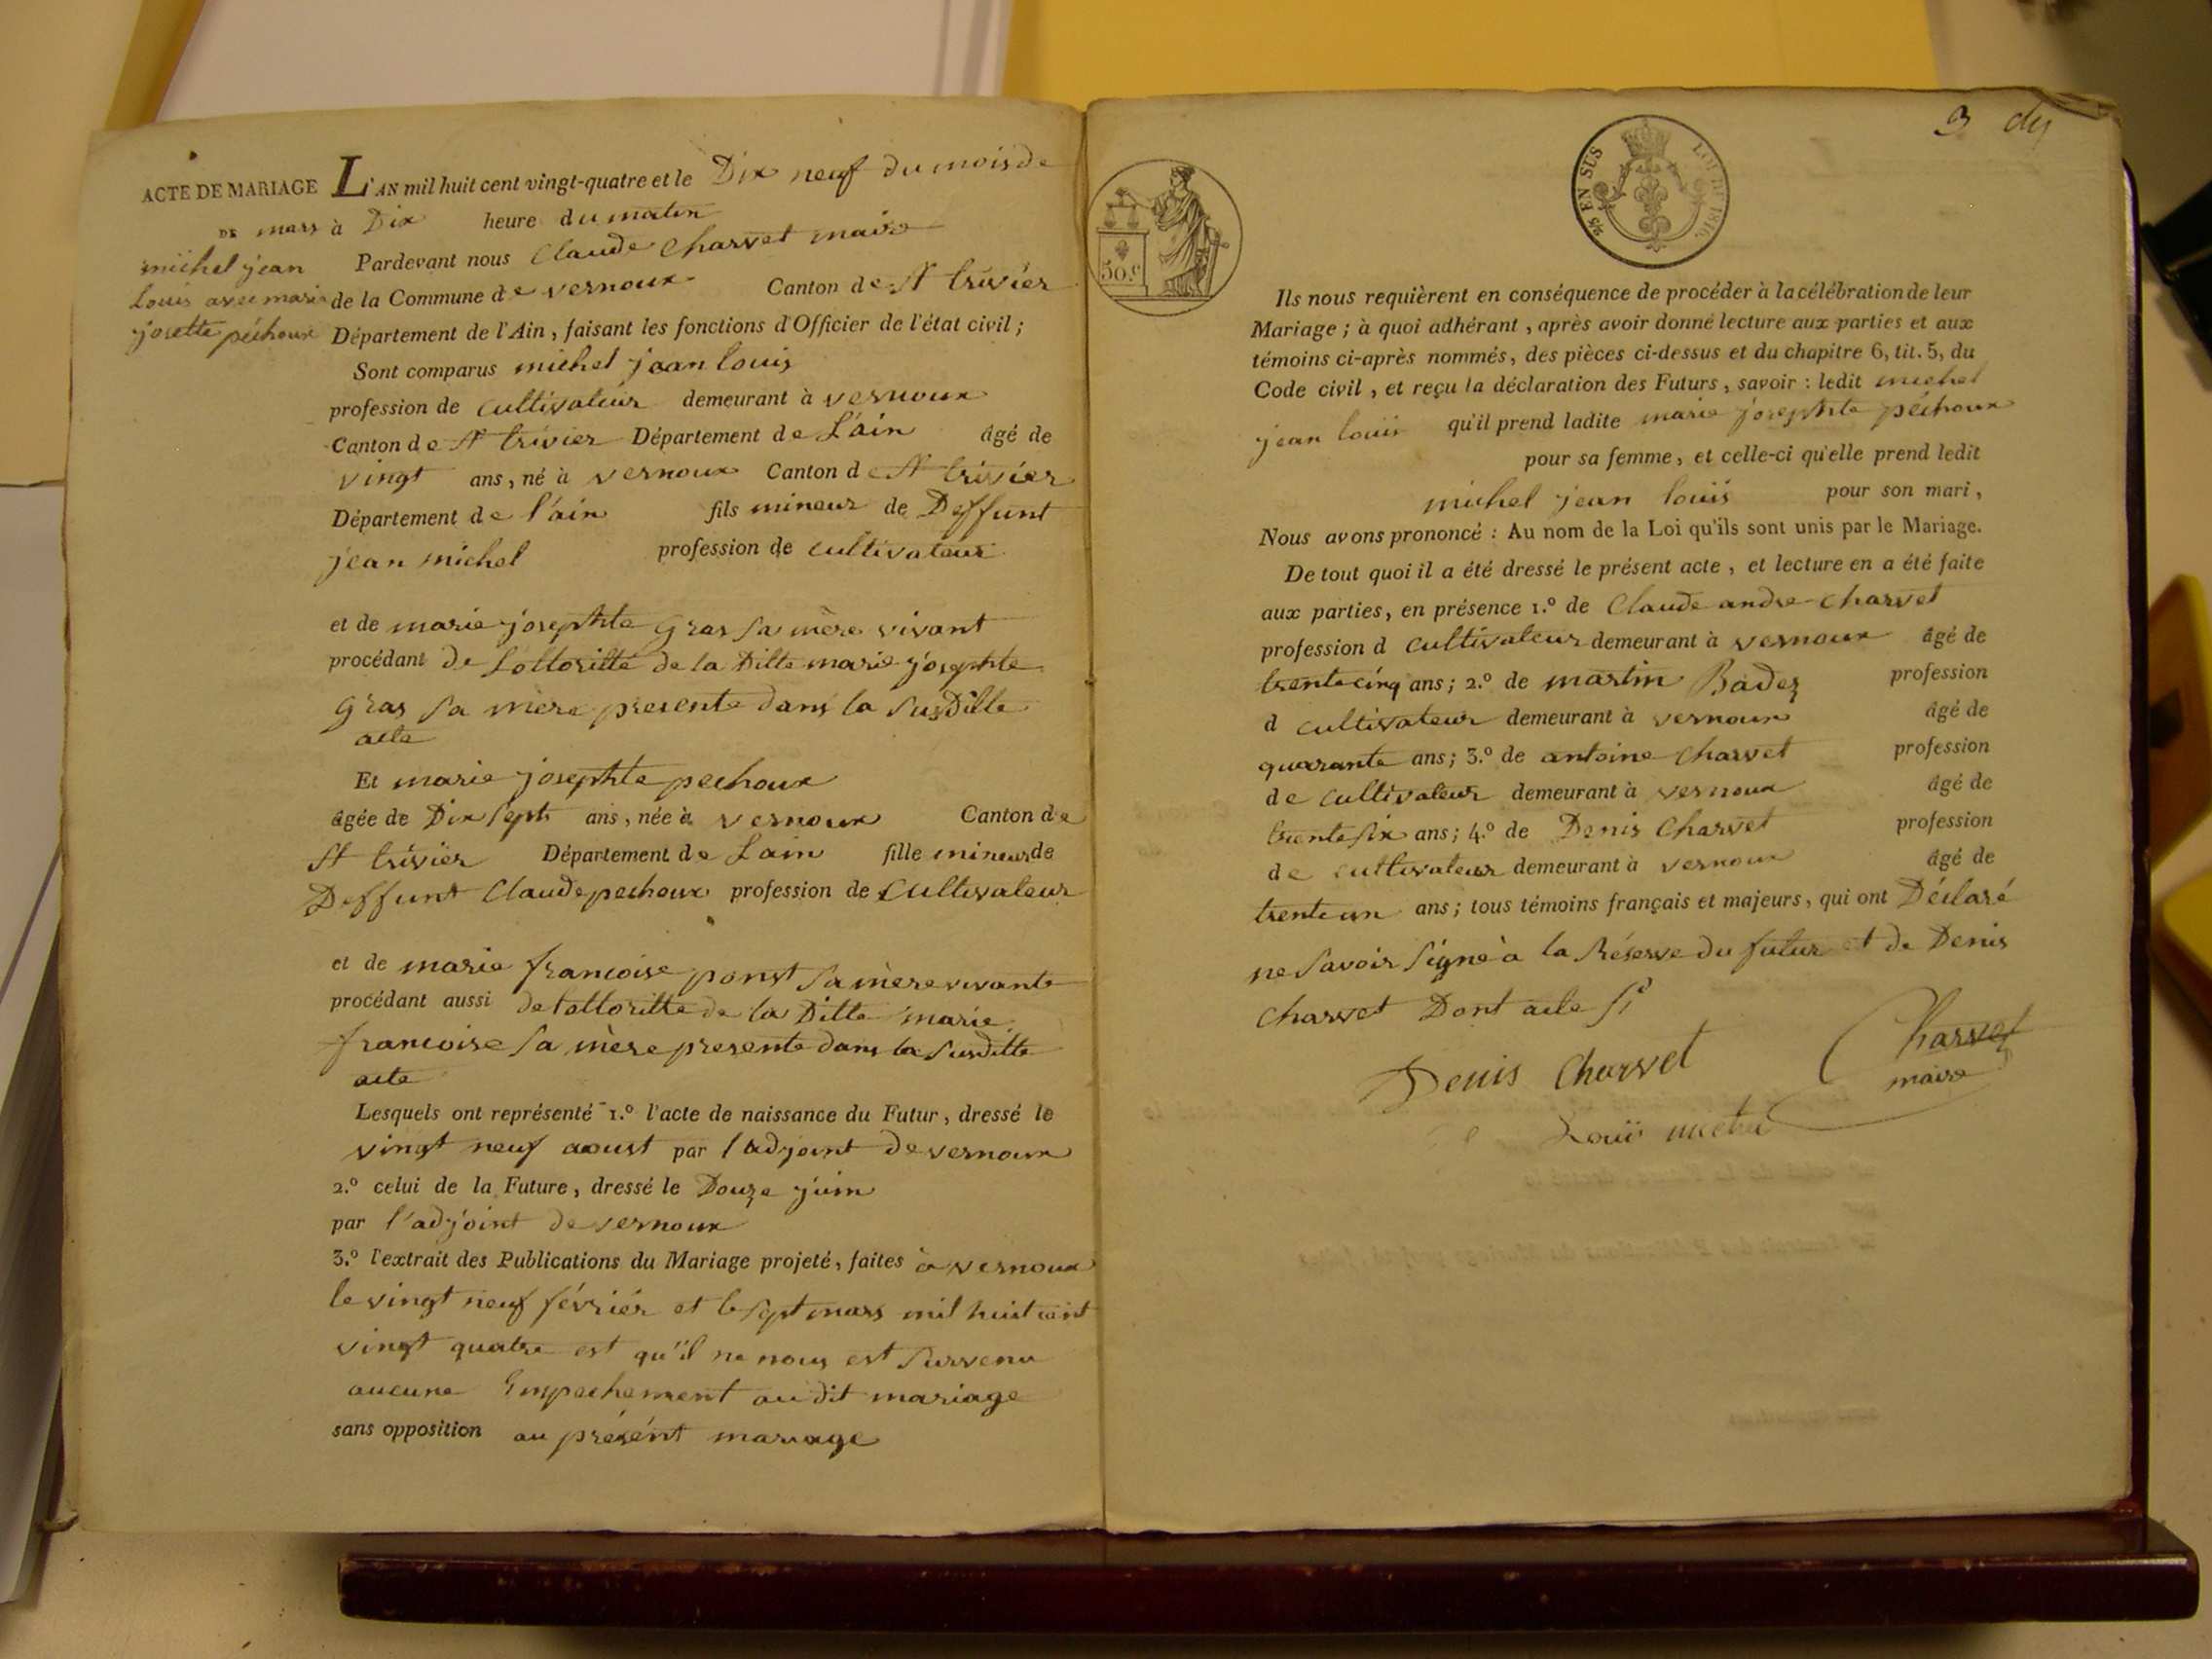 ACTE DE MARIAGE
DE
michel jean
Louis avec marie
josette péchoux
L'AN mil huit cent vingt-quatre et le Dix neuf du mois de
mars à Dix heure du matin
Pardevant nous Claude Charvet maire
de la Commune de vernoux Canton de St trivier
Département de l'Ain, faisant les fonctions d'Officier de l'état civil;
Sont comparus michel jean louis
profession de cultivateur demeurant à vernoux
Canton de St trivier Département de L'ain âgé de
vingt ans, né à vernoux Canton de St trivier
Département de l'ain fils mineur de Deffunt
jean michel profession de cultivateur
et de marie josephte gras sa mère vivant
procédant de Lottoritté de la Ditte marie josephte
gras sa mère presente dans la susditte
acte
Et marie josephte pechoux
âgée de Dix sept ans, née à vernoux Canton de
St trivier Département de Lain fille mineur de
Deffunt Claude pechoux profession de Cultivateur
et de marie francoise ponst sa mère vivante
procédant aussi de lottoritte de la Ditte marie
francoise sa mère presente dans la susditte
acte
Lesquels ont représenté 1.º l'acte de naissance du Futur, dressé le
vingt neuf aoust par l'adjoint de vernoux
2.º celui de la Future, dressé le Douze juin
par l'adjoint de vernoux
3.º l'extrait des Publications du Mariage projeté, faites à vernoux
le vingt neuf février et le sept mars mil huit cent
vingt quatre est qu'il ne nous est survenu
aucune Empechement au dit mariage
sans opposition au présént mariage
3
50 c
25 EN SUS LOI DE 1816.
Ils nous requièrent en conséquence de procéder à la célébration de leur
Mariage; à quoi adhérant, après avoir donné lecture aux parties et aux
témoins ci-après nommés, des pièces ci-dessus et du chapitre 6, tit. 5, du
Code civil, et reçu la déclaration des Futurs, savoir: ledit michel
jean louis qu'il prend ladite marie josephte péchoux
pour sa femme, et celle-ci qu'elle prend ledit
michel jean louis pour son mari,
Nous avons prononcé: Au nom de la Loi qu'ils sont unis par le Mariage.
De tout quoi il a été dressé le présent acte, et lecture en a été faite
aux parties, en présence 1.º de Claude andre Charvet
profession d cultivateur demeurant à vernoux âgé de
trente cinq ans; 2.º de martin Badez profession
d cultivateur demeurant à vernoux âgé de
quarante ans; 3.º de antoine charvet profession
de cultivateur demeurant à vernoux âgé de
trente six ans; 4.º de Denis Charvet profession
de cultivateur demeurant à vernoux âgé de
trente un ans; tous témoins français et majeurs, qui ont Déclaré
ne savoir signé à la Réserve du futur et de Denis
charvet Dont acte
Denis Charvet
Charvet
maire